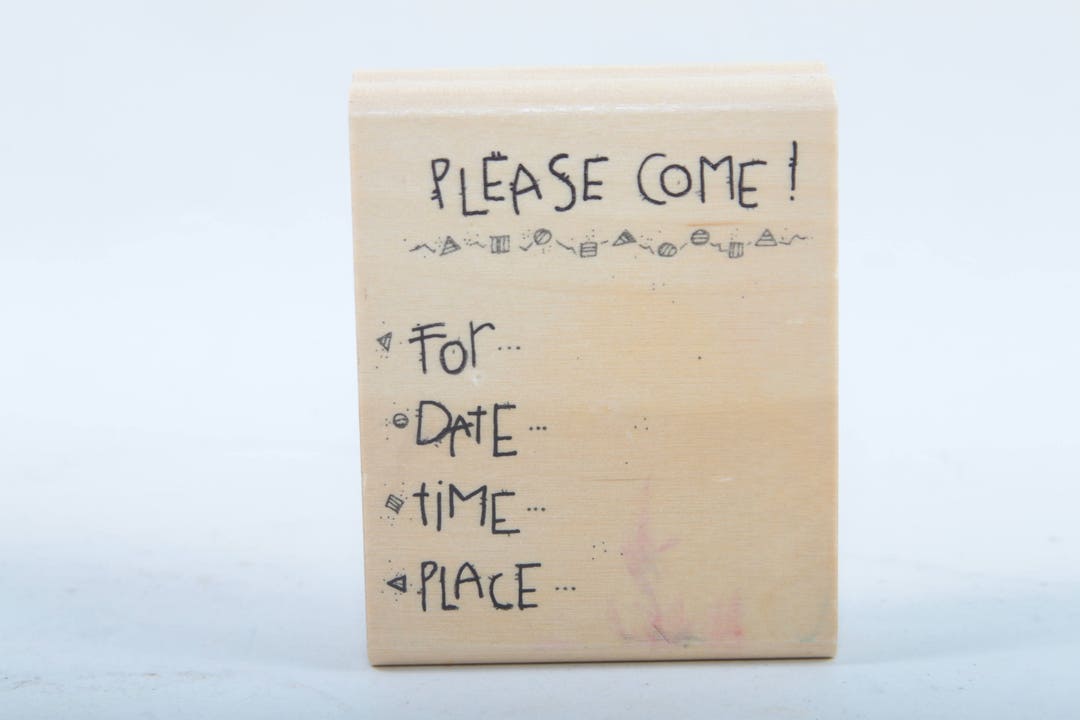 PLEASE COME!
FOr...
DATE...
tiME...
PLACE...